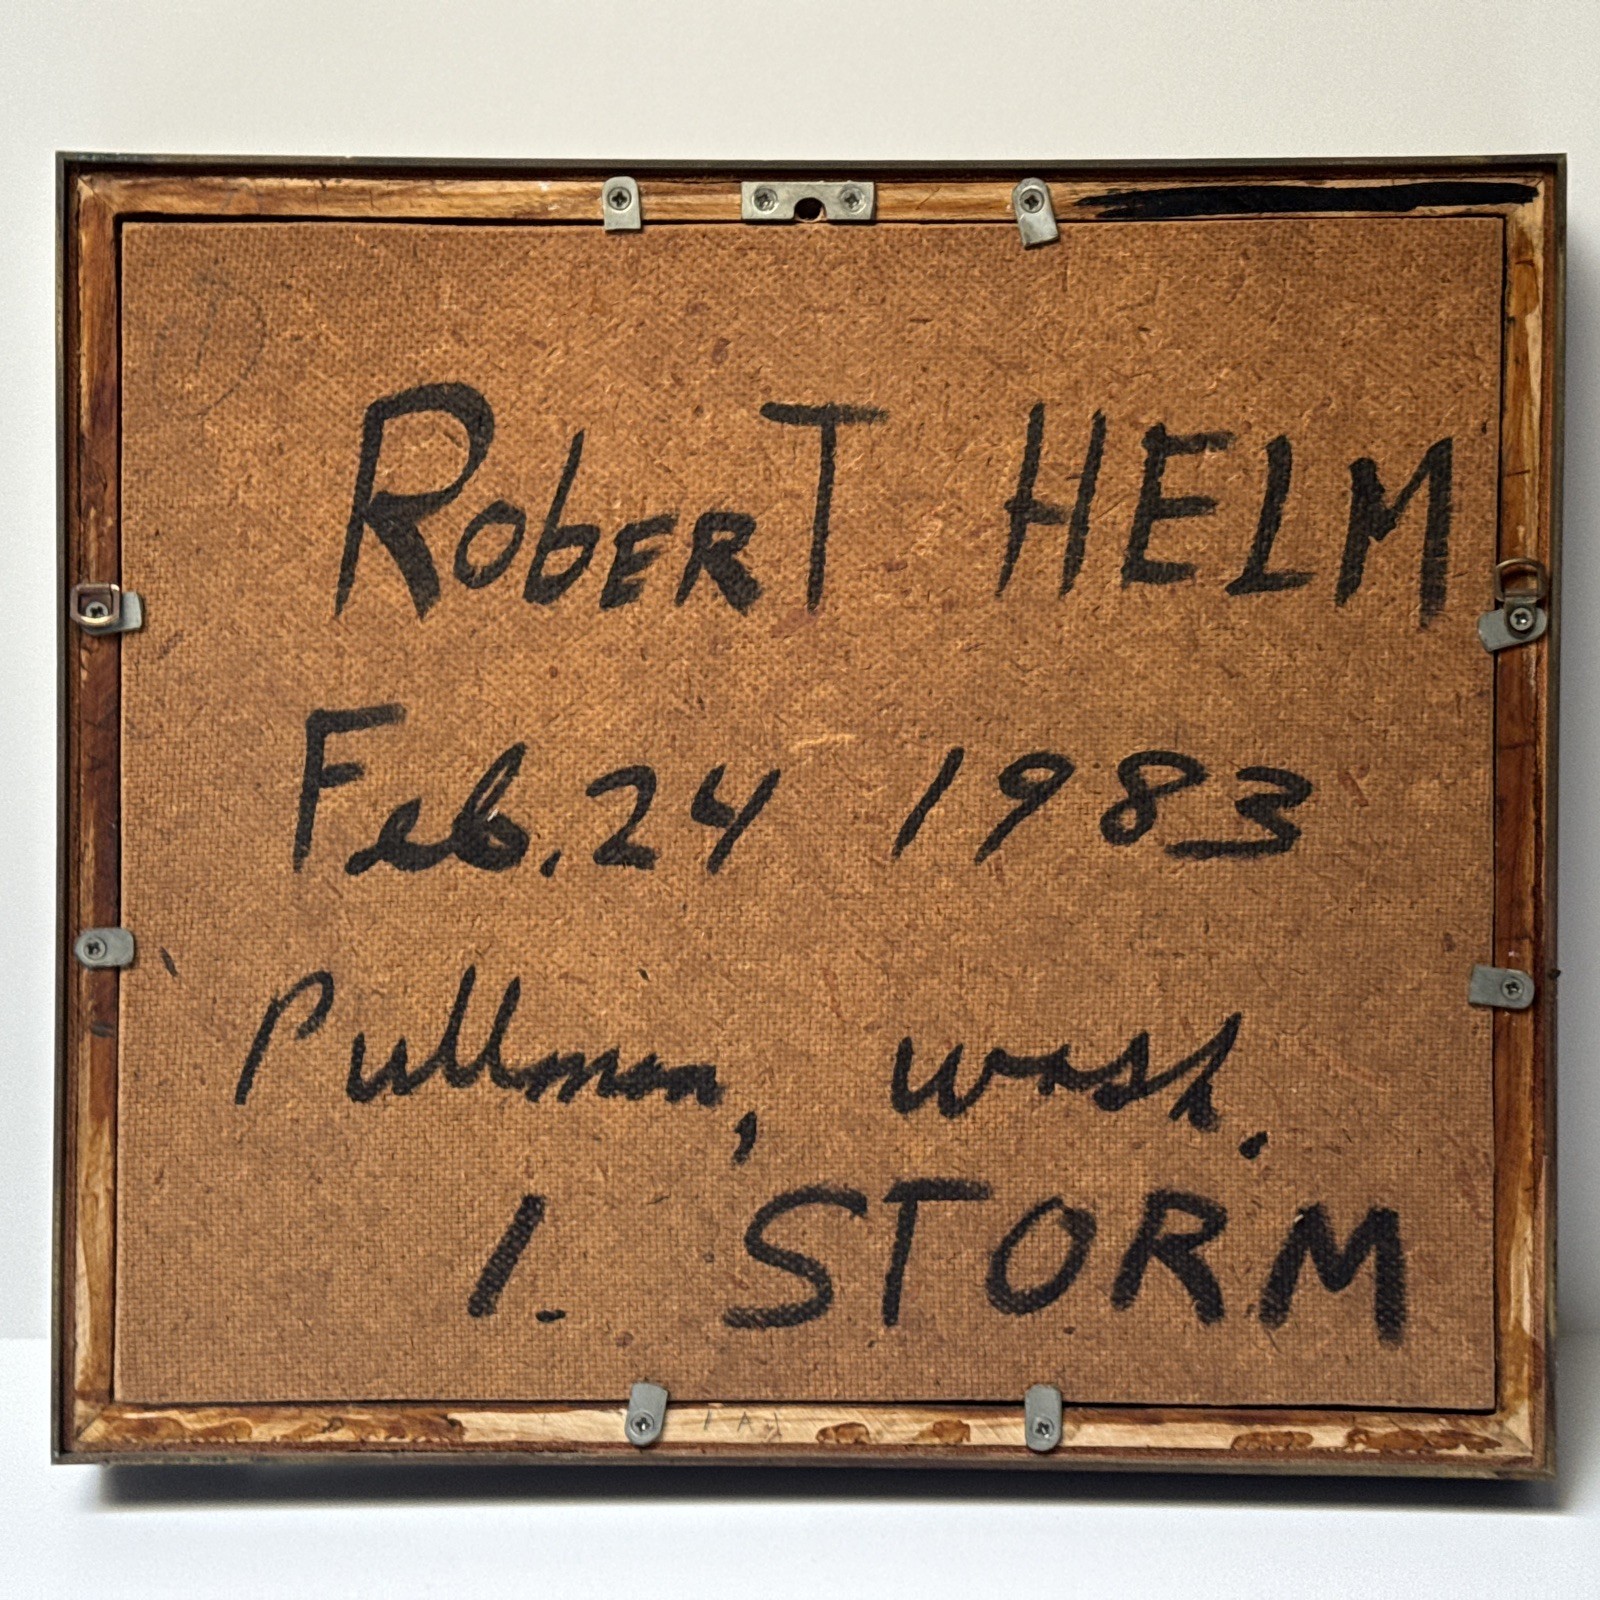 Robert HELM
Feb. 24 1983
Pullman, Wash.
1. STORM